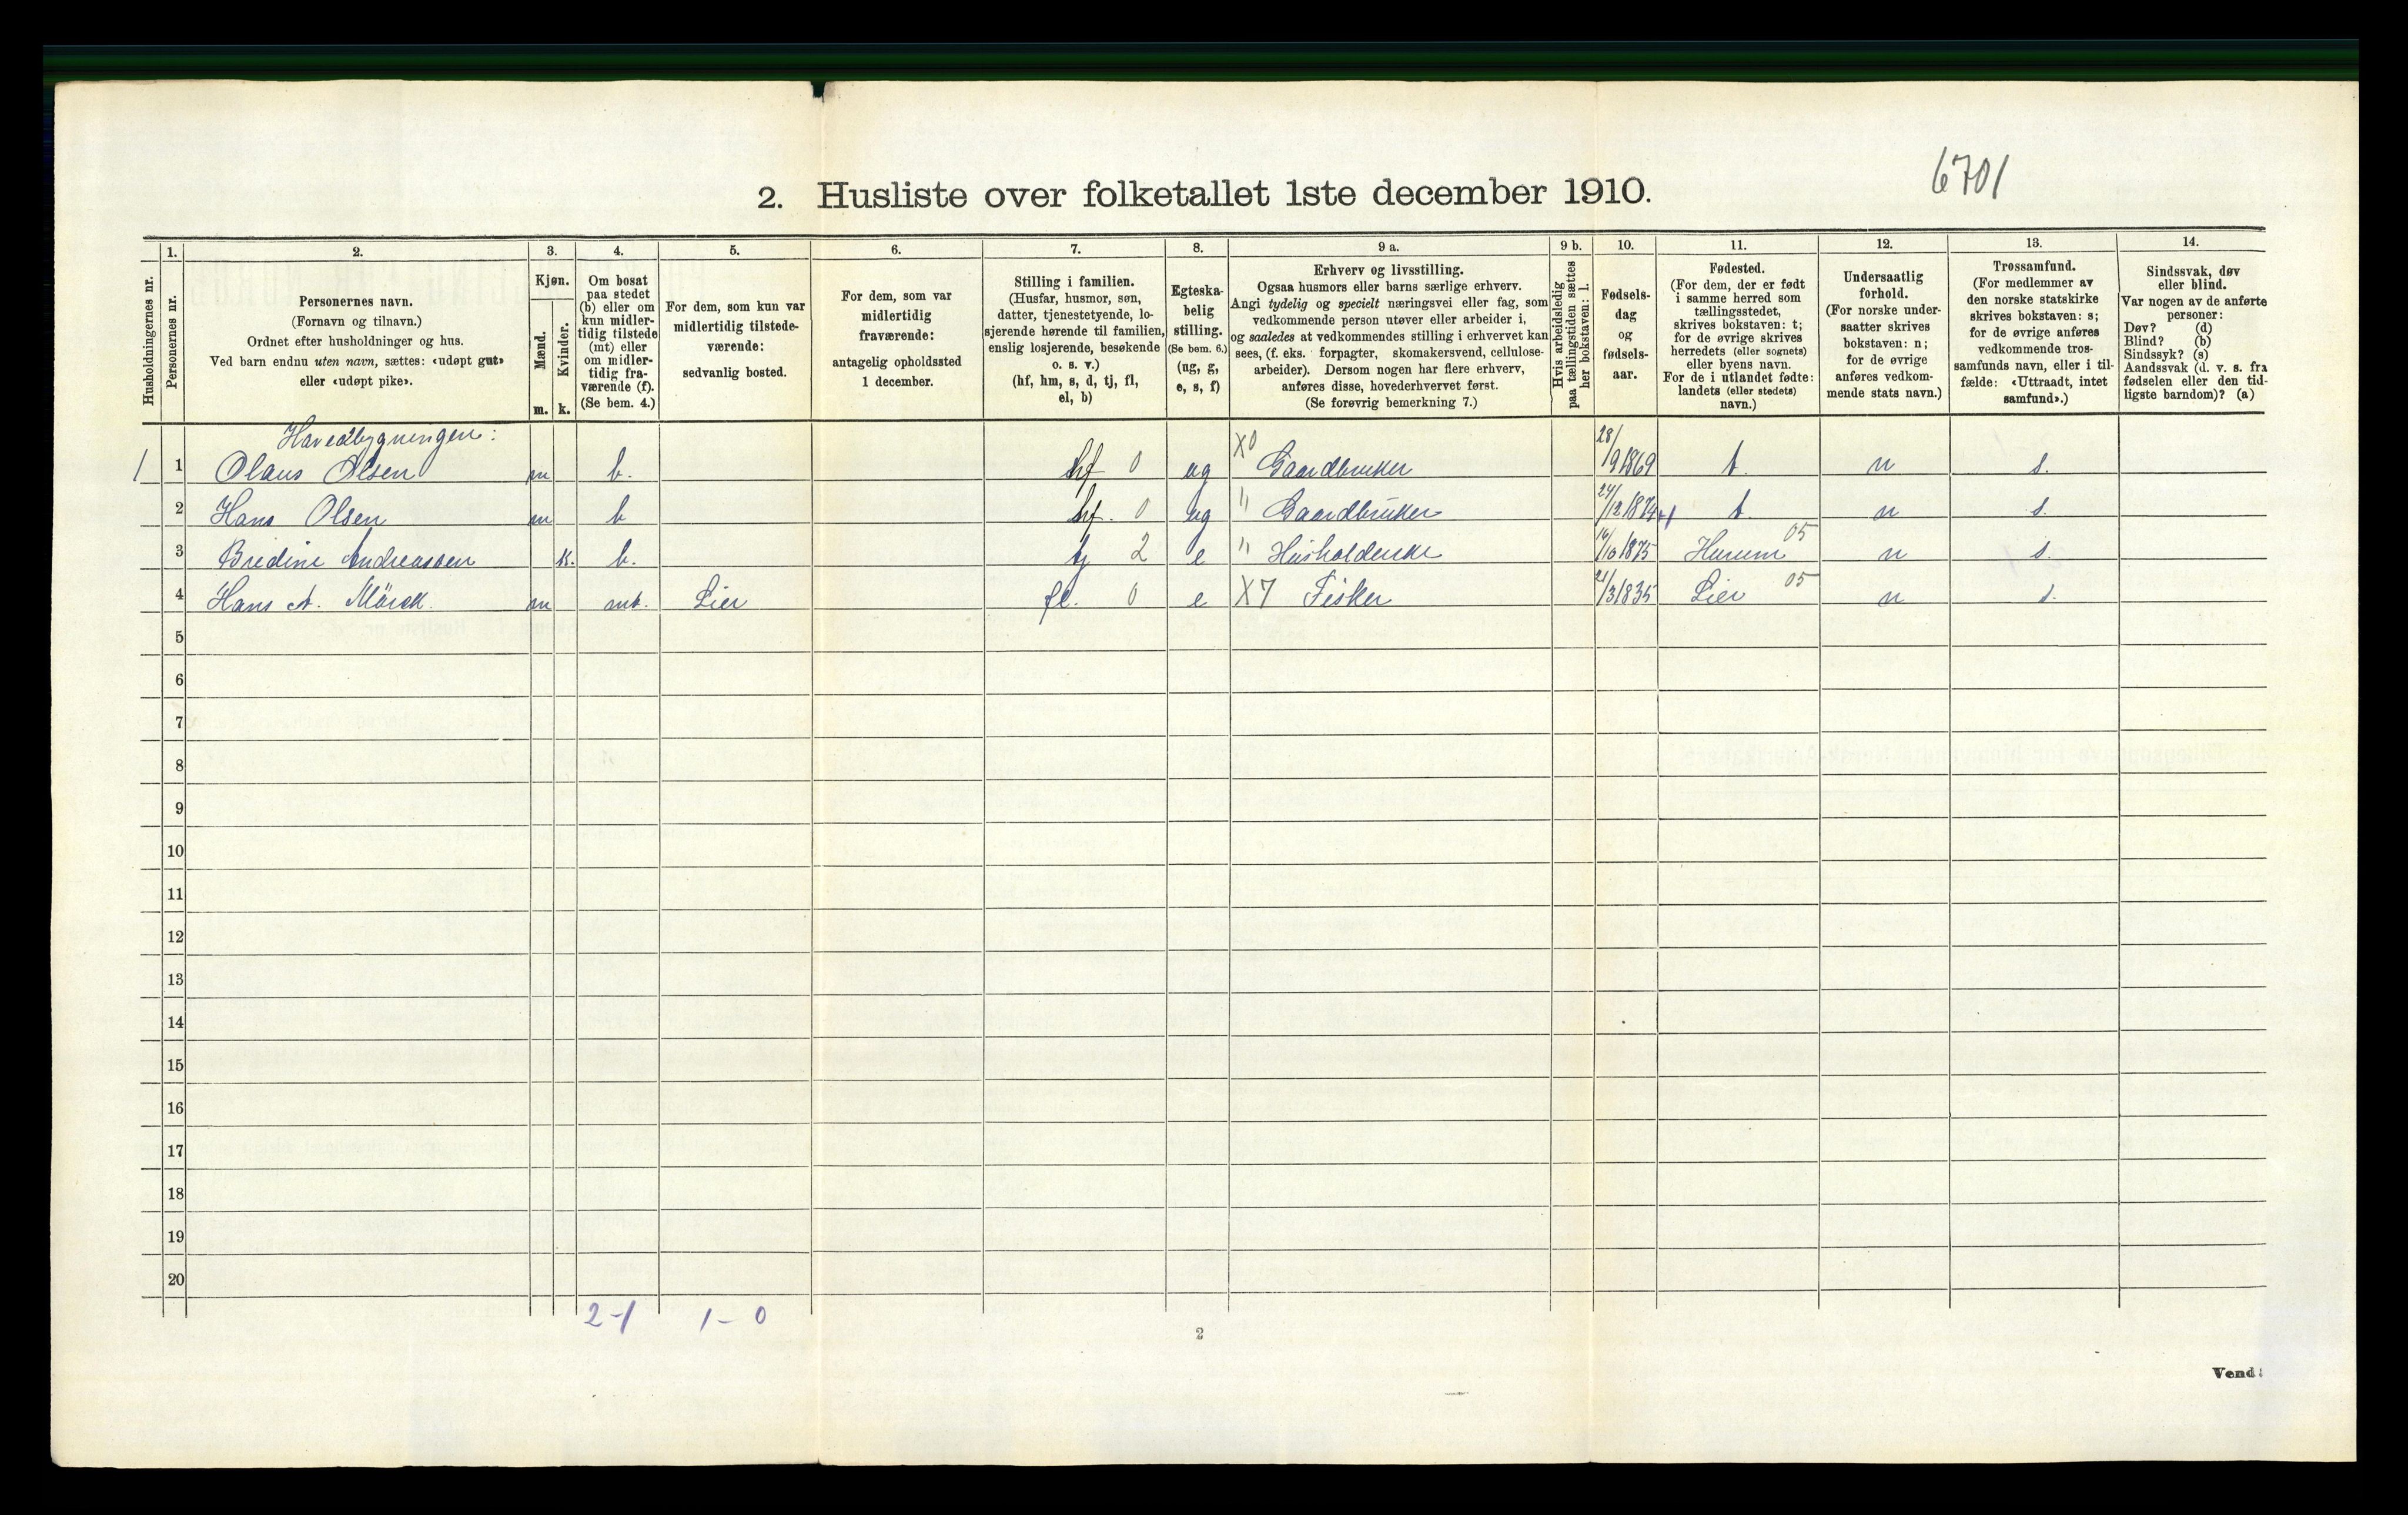 6701
2. Husliste over folketallet 1ste december 1910.
Husholdningernes nr.
1.
Personernes nr.
2.
Personernes navn.
(Fornavn og tilnavn.)
Ordnet efter husholdninger og hus.
Ved barn endnu uten navn, sættes: «udøpt gut»
eller «udøpt pike».
3.
Kjøn.
Mænd.
Kvinder.
m.
k.
4.
Om bosat
paa stedet
(b) eller om
kun midler-
tidig tilstede
(mt) eller
om midler-
tidig fra-
værende (f).
(Se bem. 4.)
5.
For dem, som kun var
midlertidig tilstede-
værende:
sedvanlig bosted.
6.
For dem, som var
midlertidig
fraværende:
antagelig opholdssted
1 december.
7.
Stilling i familien.
(Husfar, husmor, søn,
datter, tjenestetyende, lo-
sjerende hørende til familien,
enslig losjerende, besøkende
o. s. v.)
(hf, hm, s, d, tj, fl,
el, b)
8.
Egteska-
belig
stilling.
(Se bem. 6.)
(ug, g,
e, s, f)
9 a.
Erhverv og livsstilling.
Ogsaa husmors eller barns særlige erhverv.
Angi tydelig og specielt næringsvei eller fag, som
vedkommende person utøver eller arbeider i,
og saaledes at vedkommendes stilling i erhvervet kan
sees, (f. eks. forpagter, skomakersvend, cellulose-
arbeider). Dersom nogen har flere erhverv,
anføres disse, hovederhvervet først.
(Se forøvrig bemerkning 7.)
9 b.
Hvis arbeidsledig
paa tællingstiden sættes
her bokstaven: l.
10.
Fødsels-
dag
og
fødsels-
aar.
11.
Fødested.
(For dem, der er født
i samme herred som
tællingsstedet,
skrives bokstaven: t;
for de øvrige skrives
herredets (eller sognets)
eller byens navn.
For de i utlandet fødte:
landets (eller stedets)
navn.)
12.
Undersaatlig
forhold.
(For norske under-
saatter skrives
bokstaven: n;
for de øvrige
anføres vedkom-
mende stats navn.)
13.
Trossamfund.
(For medlemmer av
den norske statskirke
skrives bokstaven: s;
for de øvrige anføres
vedkommende tros-
samfunds navn, eller i til-
fælde: «Uttraadt, intet
samfund».)
14.
Sindssvak, døv
eller blind.
Var nogen av de anførte
personer:
Døv? (d)
Blind? (b)
Sindssyk? (s)
Aandssvak (d. v. s. fra
fødselen eller den tid-
ligste barndom)? (a)
Hovedbygningen:
1 1 Olaus Olsen m b. hf 0 ug X0 Gaardbruker 28/9 1869 t. n s.
2 Hans Olsen m b hf. 0 ug " Gaardbruker 24/12 1874 t. n s.
3 Bredine Andreassen k. b. tj 2 e " Husholderske 16/10 1875 Hurum 05 n s.
4 Hans A. Mörck. m mt. Lier fl. 0 e X7 Fisker 21/3 1835 Lier 05 n s.
5
6
7
8
9
10
11
12
13
14
15
16
17
18
19
20
2-1 1-0
2
Vend!